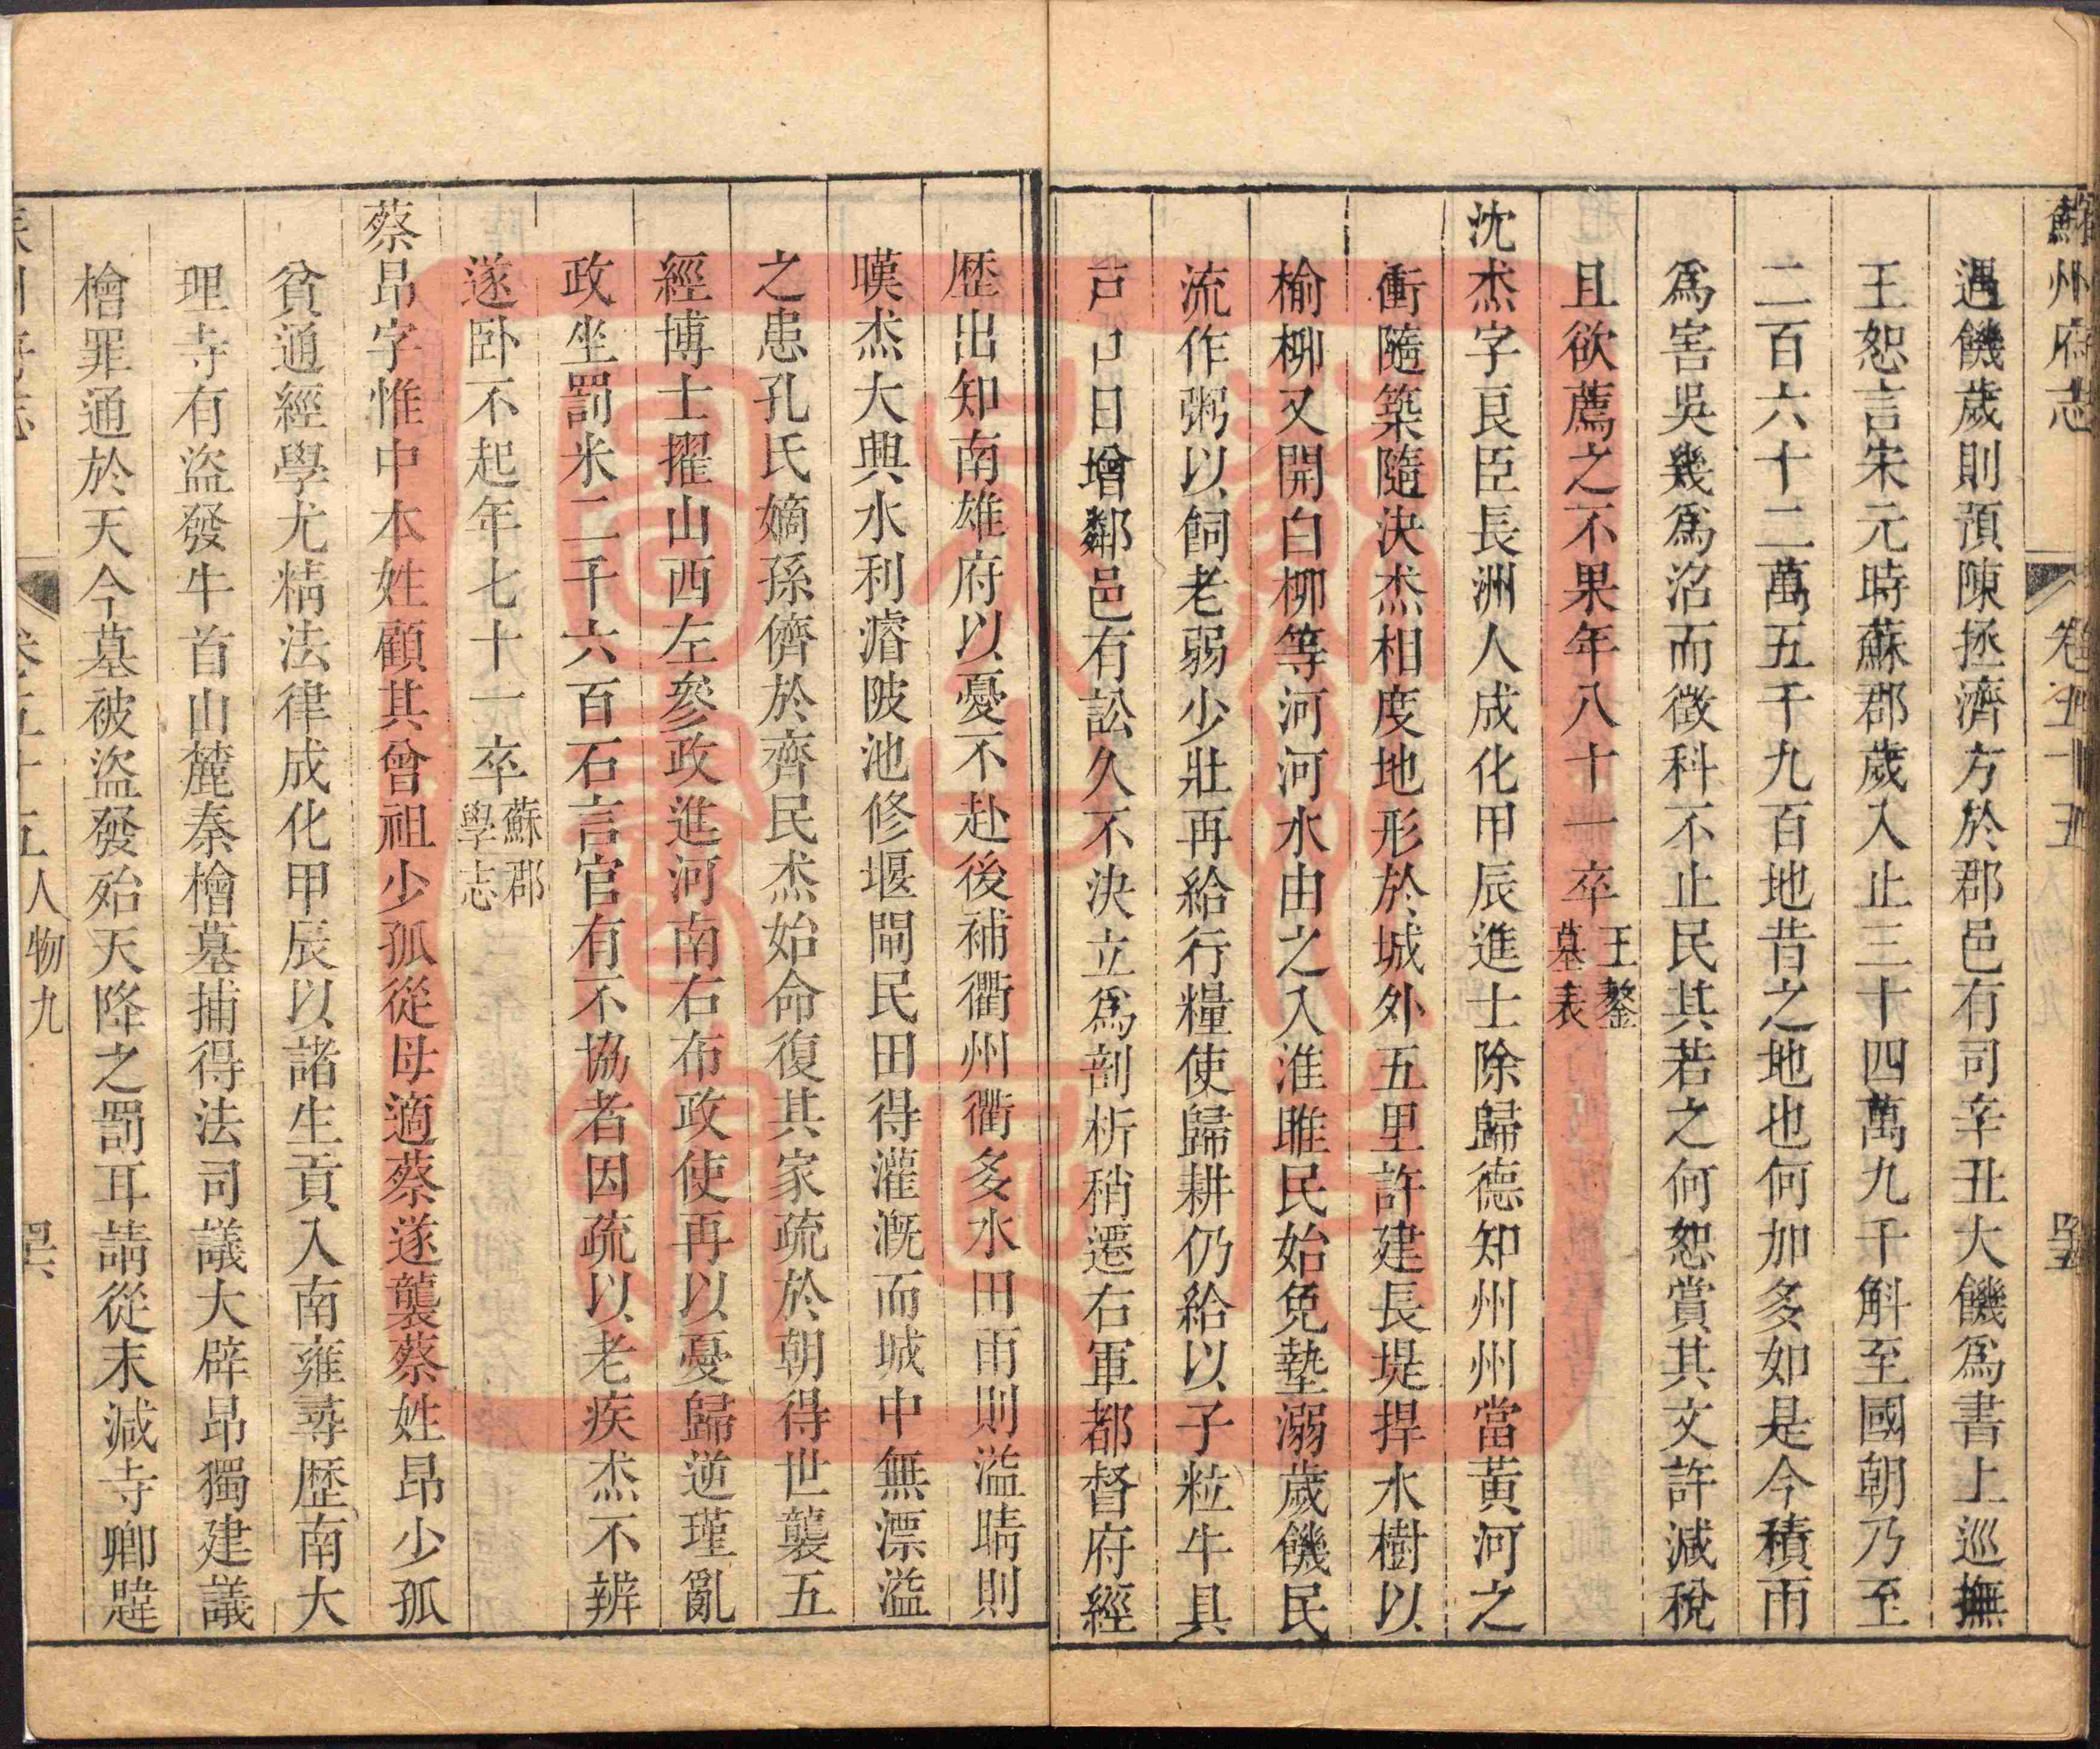 蘇州府志 卷五十五
遇饑歲則預陳拯濟方於郡邑有司辛丑大饑爲書上巡撫
王恕言宋元時蘇郡歲入止三十四萬九千斛至國朝乃至
二百六十二萬五千九百地昔之地也何加多如是今積雨
爲害吳幾爲沼而徵科不止民其若之何恕賞其文許減稅
且欲薦之不果年八十一卒王鏊墓表
沈杰字良臣長洲人成化甲辰進士除歸德知州州當黃河之
衝隨築隨決杰相度地形於城外五里許建長堤捍水樹以
榆柳又開白柳等河河水由之入淮睢民始免墊溺歲饑民
流作粥以飼老弱少壯再給行糧使歸耕仍給以子粒牛具
戸口日增鄰邑有訟久不決立爲剖析稍遷右軍都督府經
歴出知南雄府以憂不赴後補衢州衢多水田雨則溢晴則
嘆杰大興水利濬陂池修堰閘民田得灌漑而城中無漂溢
之患孔氏嫡孫儕於齊民杰始命復其家疏於朝得世襲五
經博士擢山西左參政進河南右布政使再以憂歸逆瑾亂
政坐罰米二千六百石言官有不協者因疏以老疾杰不辨
遂卧不起年七十一卒蘇郡學志
蔡昂字惟中本姓顧其曾祖少孤從母適蔡遂襲蔡姓昂少孤
貧通經學尤精法律成化甲辰以諸生貢入南雍尋歴南大
理寺有盜發牛首山麓秦檜墓捕得法司議大辟昂獨建議
檜罪通於天今墓被盜發殆天降之罰耳請從末減寺卿韙
卷五十五人物九